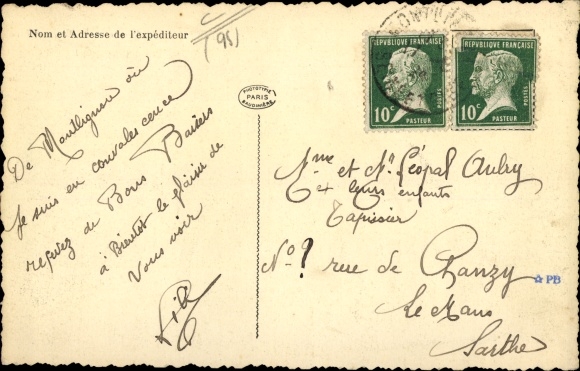 Nom et Adresse de l'expéditeur
(98)
De Montlignon où
je suis en convalescence
recevez de Bons Baisers
à Bientot le plaisir de
Vous voir
PHOTOTYPIE
PARIS
BAUDINIÈRE
REPUBLIQUE FRANÇAISE
POSTES
10c
PASTEUR
REPUBLIQUE FRANÇAISE
POSTES
10c
PASTEUR
Mme et Mr Léopol Aubry
et leurs enfants
Tapissier
No ? rue de Chanzy
Le Mans
Sarthe
PB